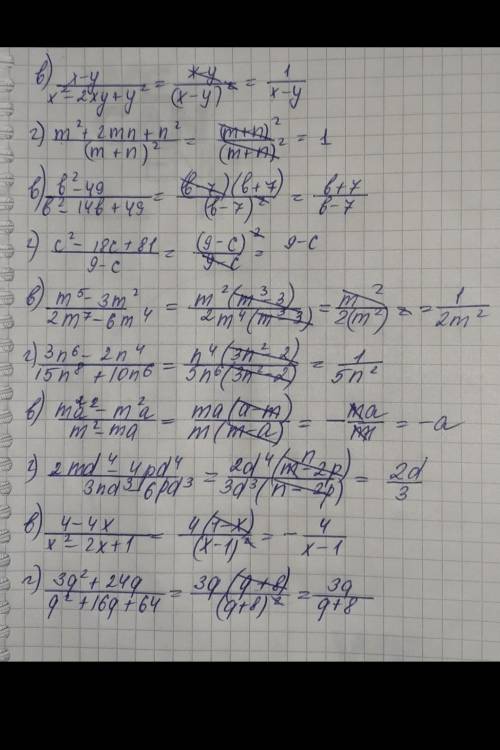 в) x-y / x²-2xy+y² = x-y / (x-y)² = 1 / x-y
г) m²+2mn+n² / (m+n)² = (m+n)² / (m+n)² = 1
в) b²-49 / b²-14b+49 = (b-7)(b+7) / (b-7)² = b+7 / b-7
г) c²-18c+81 / 9-c = (9-c)² / 9-c = 9-c
в) m⁵-3m² / 2m⁷-6m⁴ = m²(m³-3) / 2m⁴(m³-3) = m² / 2(m²)² = 1 / 2m²
г) 3n⁶-2n⁴ / 15n⁸+10n⁶ = n⁴(3n²-2) / 5n⁶(3n²-2) = 1 / 5n²
в) ma²-m²a / m²-ma = ma(a-m) / m(m-a) = -ma / m = -a
г) 2md⁴-4pd⁴ / 3nd³-6pd³ = 2d⁴(m-2p) / 3d³(n-2p) = 2d / 3
в) 4-4x / x²-2x+1 = 4(1-x) / (x-1)² = -4 / x-1
г) 3q²+24q / q²+16q+64 = 3q(q+8) / (q+8)² = 3q / q+8